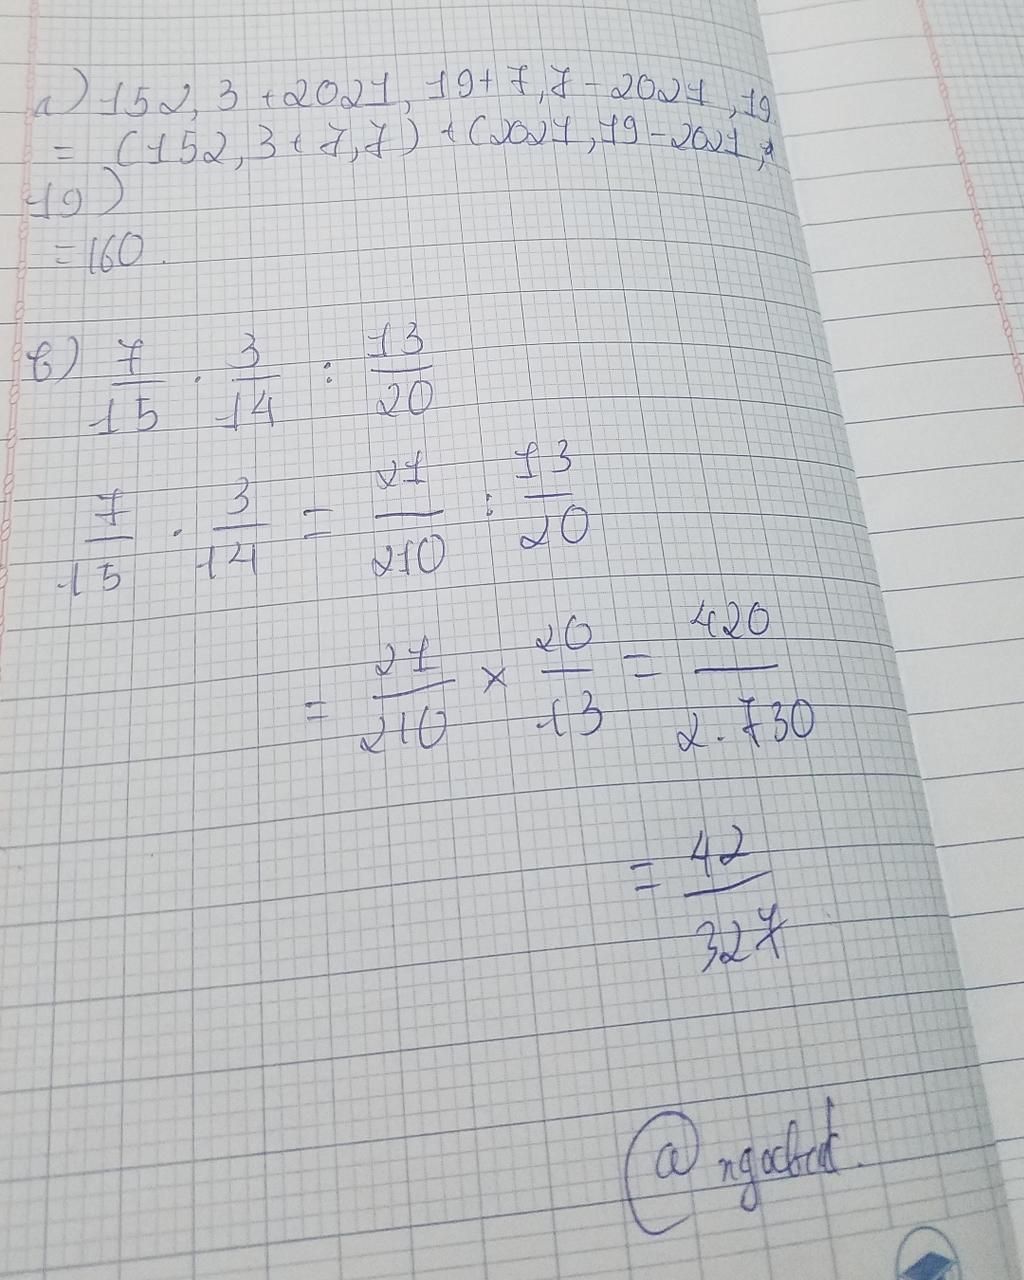 a) 152,3 + 2021,19 + 7,7 - 2021,19
= (152,3 + 7,7) + (2021,19 - 2021,
19)
= 160.
b) 7/15 . 3/14 : 13/20
7/15 . 3/14 = 21/210 : 13/20
= 21/210 × 20/13 = 420/2.730
= 42/327